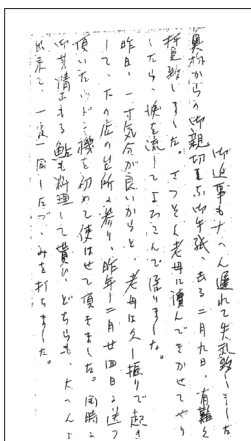 御返事も大へん遅れて失礼いたしました
奥村からの御親切なる御手紙、去る二月九日、有難く
拝見致しました。さっそく老母に讀んできかせてやり
ましたら、涙を流してよろこんで居りました。
昨日、一寸気分が良いからと、老母は久し振りで起き
して、たの店の台所に参り、昨年十二月廿四日に送って
頂いたウドン機を初めて使はせて頂きました。同時に
御芳情こもる鮎も料理して貰ひ、どちらも、大へんよく
出来て、一家一同したつゞみを打ちました。